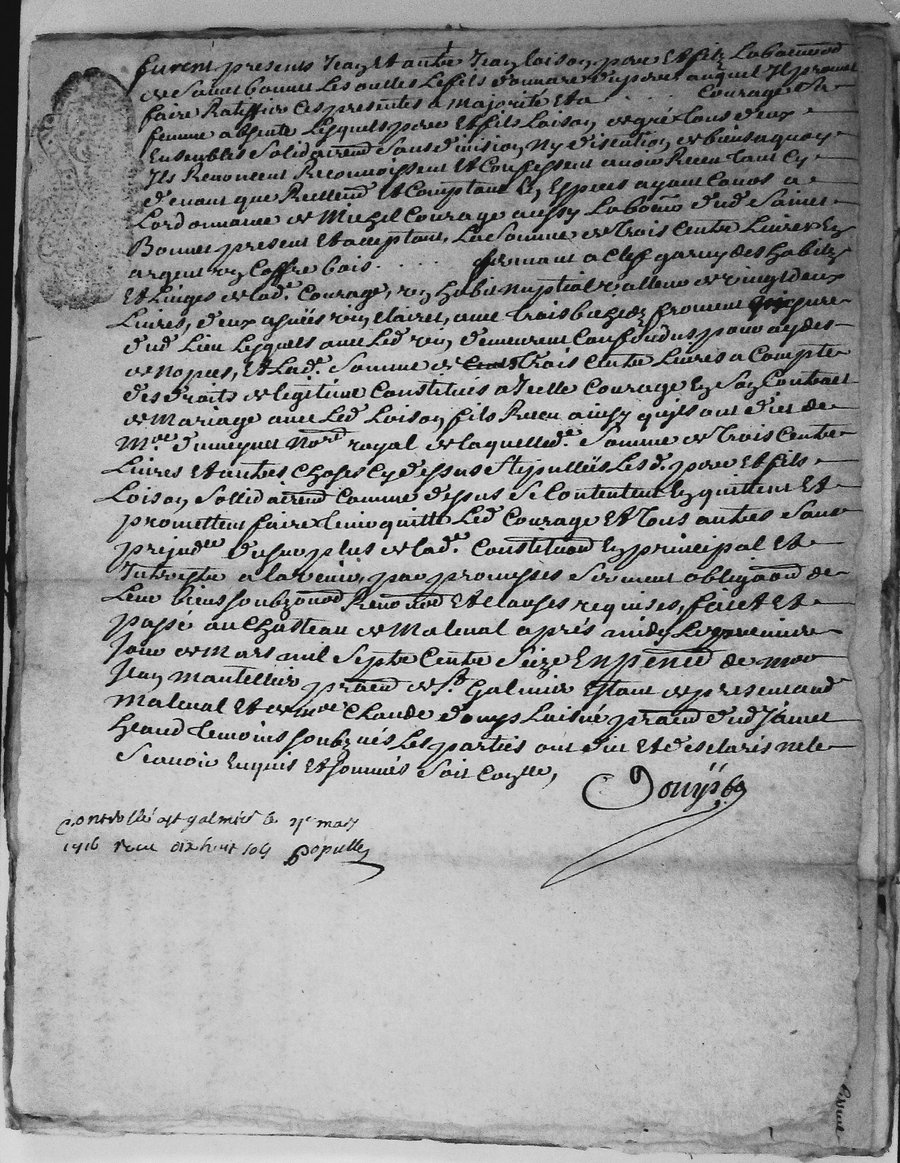 furent presents Jean et autre Jean Loison pere et filz laboureurs
de Sainct bonnet les oulles le fils emancipé dud pere auquel Il promet
faire Ratiffier Ces presentes a Majorité et a Courage Sa
femme absente Lesquels pere et fils Loison de gré tous deux
Ensembles Solidairemt Sans division Ny discution de biens a quoy
Ils Renoncent Reconnoissent et Confessent avoir Receu tant Cy
devant que Reellemt et Comptant En Especes ayant Cours a
Lordonnance de Michel Courage aussy Laboureur dud Sainct
Bonnet present et acceptant, La Somme de trois Cents Livres En
argent un Coffre bois fermant a Clef garny des habits
Et Linges de lad. Courage, un habit Nuptial valleur de vingt deux
Livres, deux asnées vin clairet, avec trois bichetz froment mesure
dud Lieu Lesquels avec Led vin demeurent Confondus pour aydes
de Nopces, Et Lad. Somme de trois Cents Livres a Compte
des droits de legitime Constitués a Icelle Courage En Son Contract
de Mariage avec Led Loison fils Receu ainsy quils ont dict de
Mre Notre royal de laquelle de. Somme de trois Cents
Livres et autres Choses Cy dessus Stipullées Les d. pere et fils
Loison Sollidairemt Comme dessus Se Contentent En quittent Et
promettent faire tenir quitte Led Courage et tous autres Sans
prejudce du Surplus de lad. Constitution En principal Et
Interestz a ladvenir, par promesses Serment obligaon de
Leur biens Renonon et Clauses requises, faict Et
passé au Chasteau de Maleval apres midy Le premier
Jour de Mars mil Sept Cents Seize En pence de Mre
Jean Mantellier praen de St Galmier Estant de present aud
Maleval Et de Mre Claude Douys Laisné praen dud Sainct
heand temoins Soubznés Les parties ont dict et desclaré ne le
Scavoir Enquis Et Sommés Soit Contllé,
Douys
Controllé a st galmier le mars
1716 Receu dix huit sols Populle